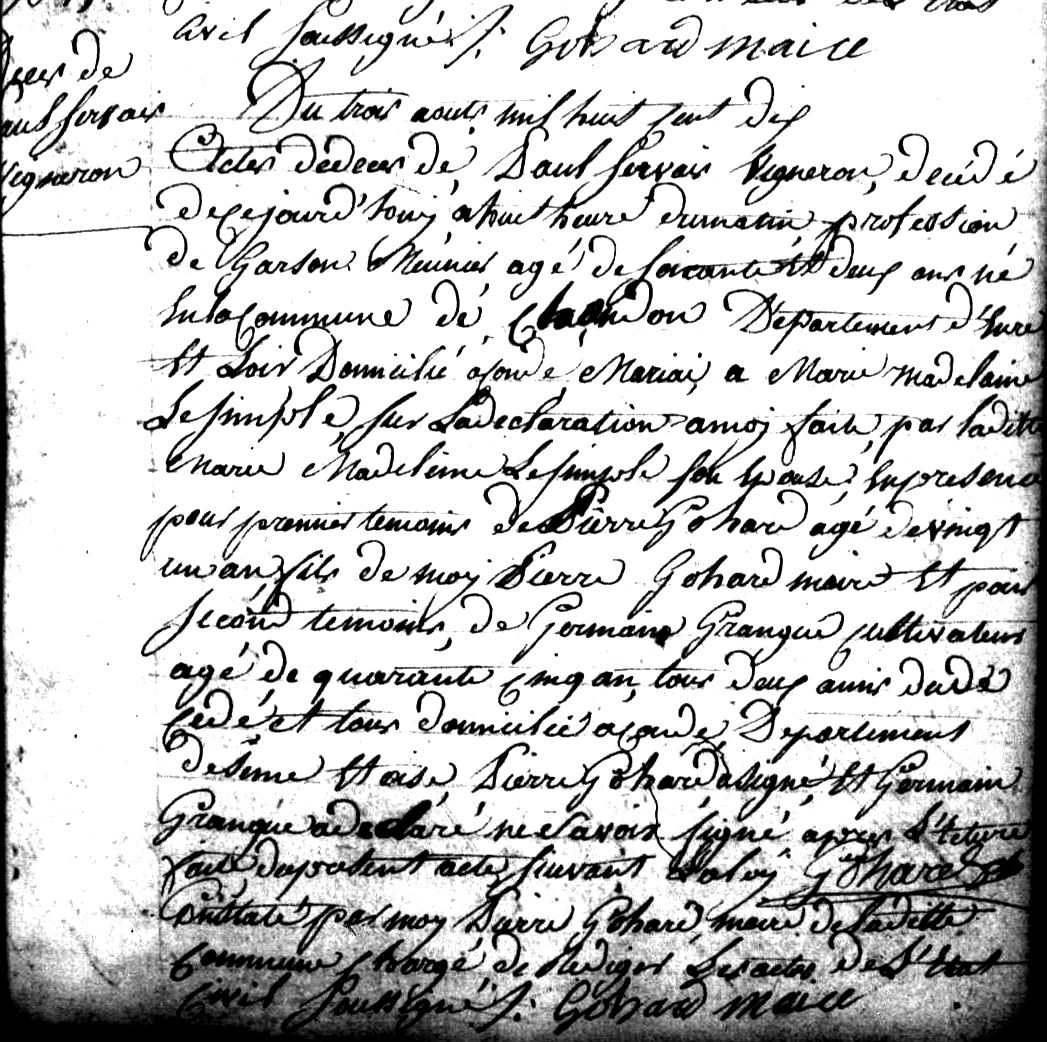 civil soussigné ⁄. Gohard maire
Deces de
Paul Servais
Vigneron
Du trois aouts mil huit cent dix
Actes dedeces dé Paul Servais Vigneron, decédé
decejourd'houy a huit heure dumatin profession
de Garson Meunier agé de soixante Et deux ans né
En la Commune dé Departement d'Eure
Et Loir Domicilié a Mariai a Marie madelaine
Lesimple, sur Ladeclaration amoy faite par laditte
Marie Madeleine Lesimple son Epouse, En presence
pour premier temoins de Pierre Gohard agé devingt
un an fils de moy Pierre Gohard maire Et pour
second temoins, de Germain Grangué cultivateur
agé de quarante cinq an, tous deux amis dudé
cedé, et tous domicilié a Departement
deseine Et oise Pierre Gohard a signé Et Germain
Grangué a declaré ne savoir signé apres L'ecture
faite dupresent acte suivant Laloy Gohard
Constaté par moy Pierre Gohard, maire deladitte
Commune chargé de Rediger Les actes de L'Etat
Civil soussigné ⁄. Gohard maire